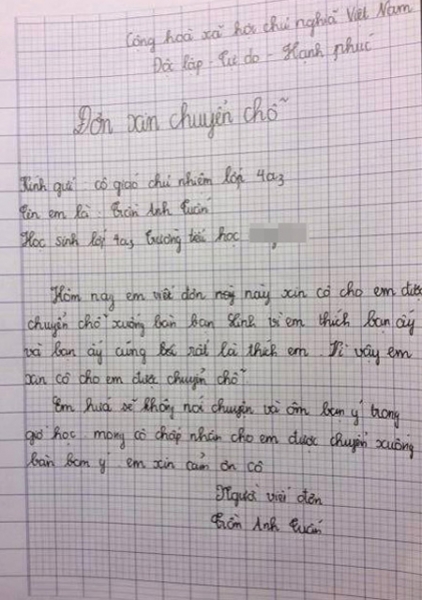 Cộng hoà xã hội chủ nghĩa Việt Nam
Độc lập - Tự do - Hạnh phúc
Đơn xin chuyển chỗ
Kính gửi: cô giáo chủ nhiệm lớp 4a3
Tên em là: Trần Anh Tuấn
Học sinh lớp 4a3 Trường tiểu học
Hôm nay em viết đơn này xin cô cho em được
chuyển chỗ xuống bàn bạn Linh vì em thích bạn ấy
và bạn ấy cũng rất là thích em. Vì vậy em
xin cô cho em được chuyển chỗ.
Em hứa sẽ không nói chuyện và ôm bạn ý trong
giờ học. mong cô chấp nhận cho em được chuyển xuống
bàn bạn ý. em xin cảm ơn cô
Người viết đơn
Trần Anh Tuấn